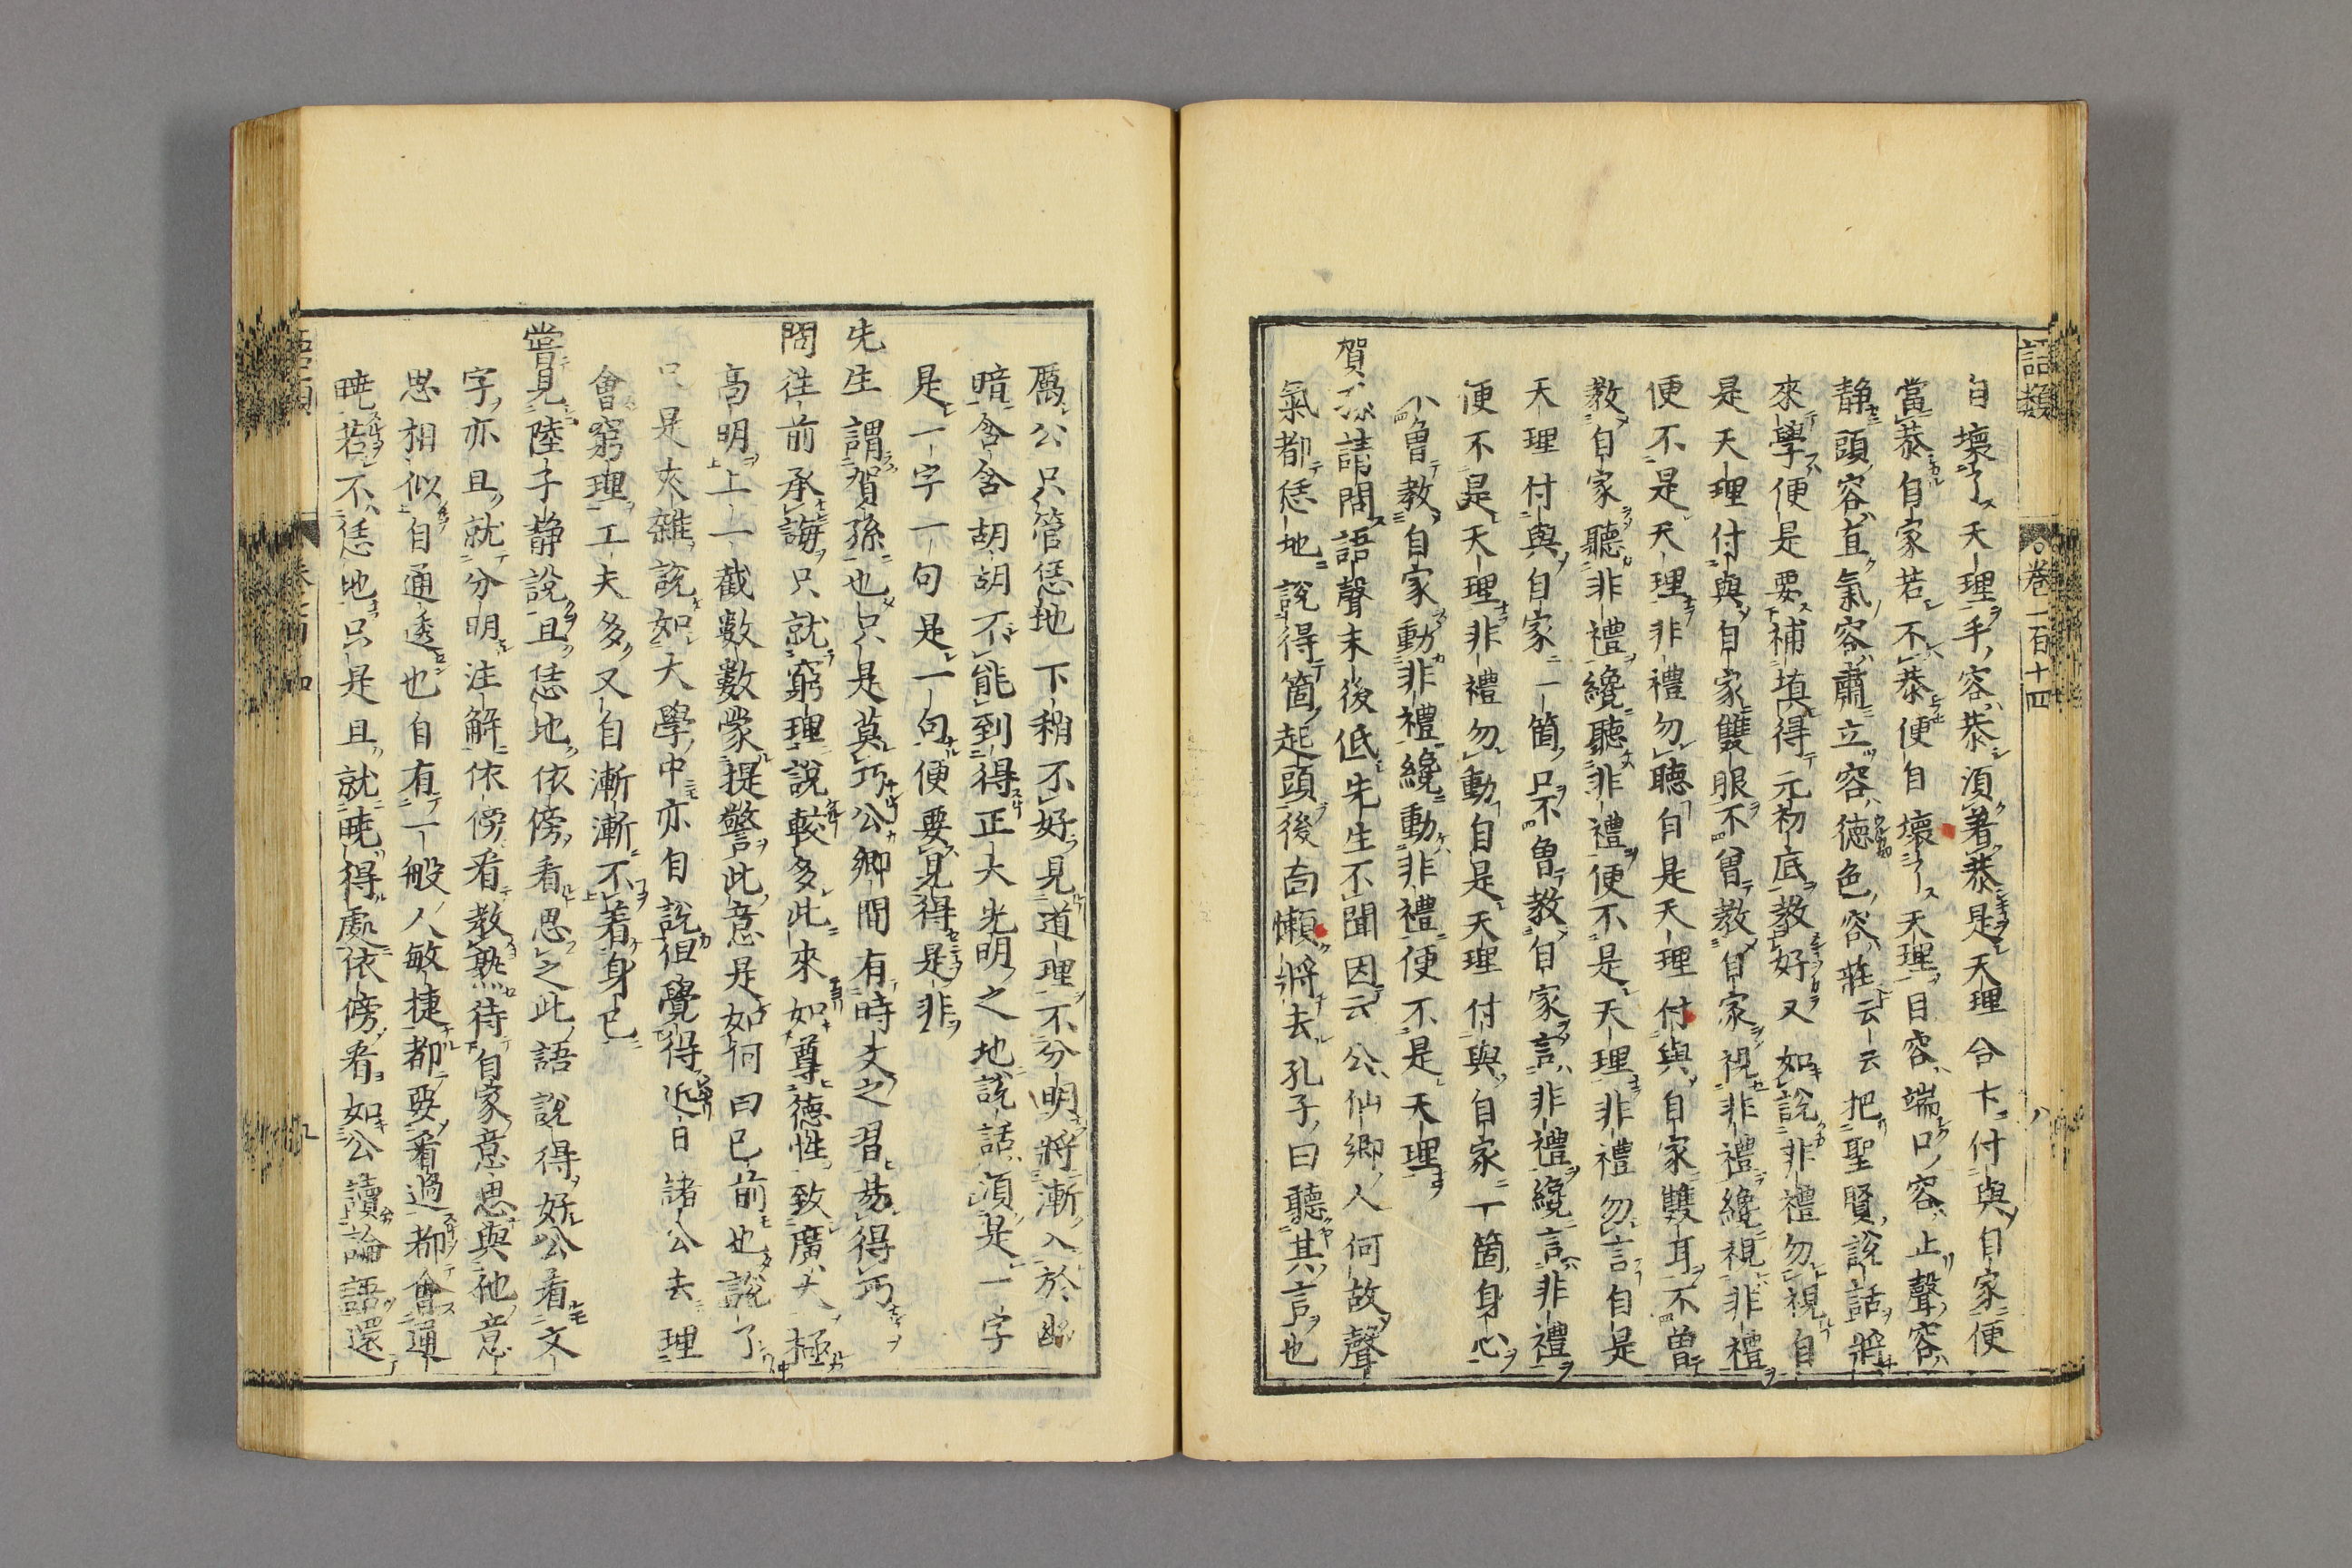 語類 卷一百十四 八
自壞了天理手容恭須着恭是天理合下付與自家便
當恭自家若不恭便自壞了天理目容端口容止聲容
静頭容直氣容肅立容德色容莊云云把聖賢說話將
來學便是要補填得元初底教好又如說非禮勿視自
是天理付與自家雙眼不曾教自家視非禮纔視非禮
便不是天理非禮勿聽自是天理付與自家雙耳不曾
教自家聽非禮纔聽非禮便不是天理非禮勿言自是
天理付與自家一箇口不曾教自家言非禮纔言非禮
便不是天理非禮勿動自是天理付與自家一箇身心
不曾教自家動非禮纔動非禮便不是天理
賀孫請問語聲末後低先生不聞因云公仙鄉人何故聲
氣都恁地說得箇起頭後面懶將去孔子曰聽其言也
厲公只管恁地下稍不好見道理不分明將漸入於幽
暗含含胡胡不能到得正大光明之地說話須是一字
是一字一句是一句便要見得是非
先生謂賀孫也只是莫巧公鄉間有時文之習易得巧
問往前承誨只就窮理說較多此來如尊德性致廣大極
高明上一截數數蒙提警此意是如何曰已前也說了
只是夾雜說如大學中亦自說但覺得近日諸公去理
會窮理工夫多又自漸漸不着身已
嘗見陸子静說且恁地依傍看思之此語說得好公看文
字亦且就分明注解依傍看教熟待自家意思與他意
思相似自通透也自有一般人敏捷都要看過都會通
曉若不恁地只是且就曉得處依傍看如公讀論語還
九